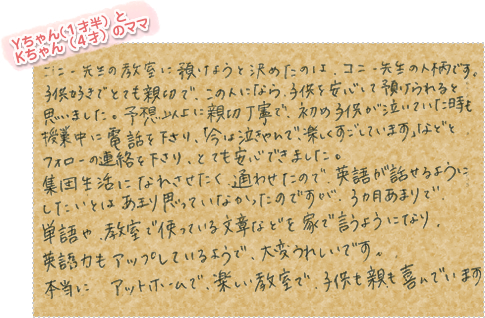 Yちゃん(1才半)と
Kちゃん(4才)のママ
コニー先生の教室に預けようと決めたのは、コニー先生の人柄です。
子供好きでとても親切で、この人になら、子供を安心して預けられると
思いました。予想以上に親切丁寧で、初め子供が泣いていた時も
授業中に電話を下さり、「今は泣きやんで楽しくすごしています」などと
フォローの連絡を下さり、とても安心できました。
集団生活になれさせたく、通わせたので、英語が話せるように
したいとはあまり思っていなかったのですが、3カ月あまりで、
単語や、教室で使っている文章などを家で言うようになり、
英語力もアップしているようで、大変うれしいです。
本当に アットホームで、楽しい教室で、子供も親も喜んでいます